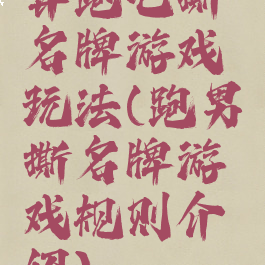 奔跑吧撕
名牌游戏
玩法(跑男
撕名牌游
戏规则介
绍)